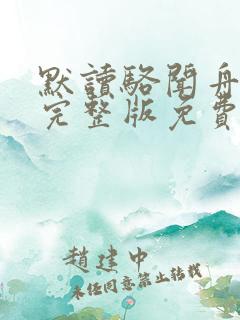 默讀駱聞舟
完整版免費
趙建中
未经同意禁止转载